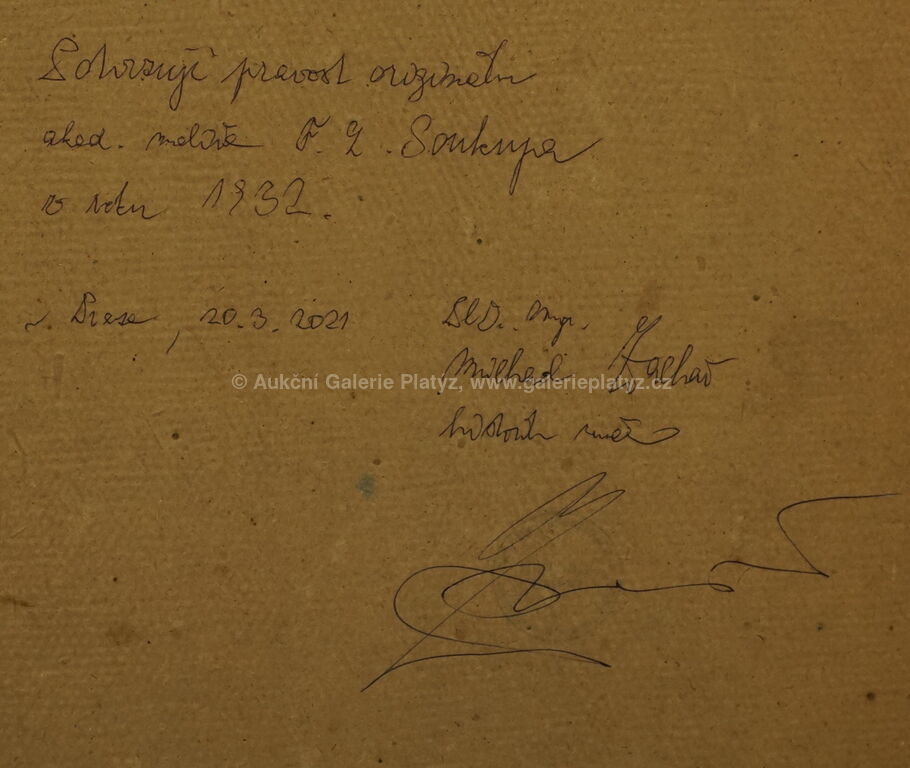 Potvrzuji pravost originálu
akad. malíře F. Z. Soukupa
v roku 1932.
v Praze, 20.3.2021
PhD. Mgr.
Michael Zachař
© Aukční Galerie Platýz, www.galerieplatyz.cz
historik umění